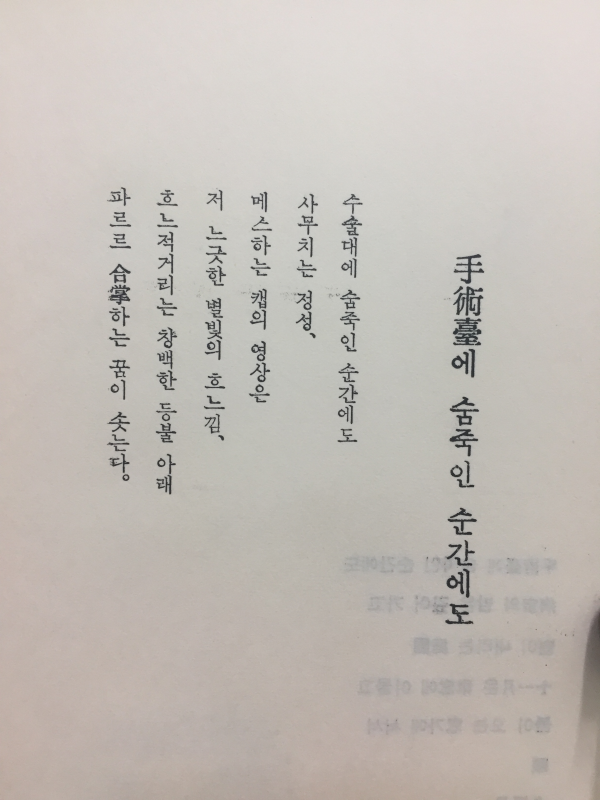 手術臺에 숨죽인 순간에도
수술대에 숨죽인 순간에도
사무치는 정성、
메스하는 캡의 영상은
저 느긋한 별빛의 흐느낌、
흐느적거리는 창백한 등불 아래
파르르 合掌하는 꿈이 솟는다。